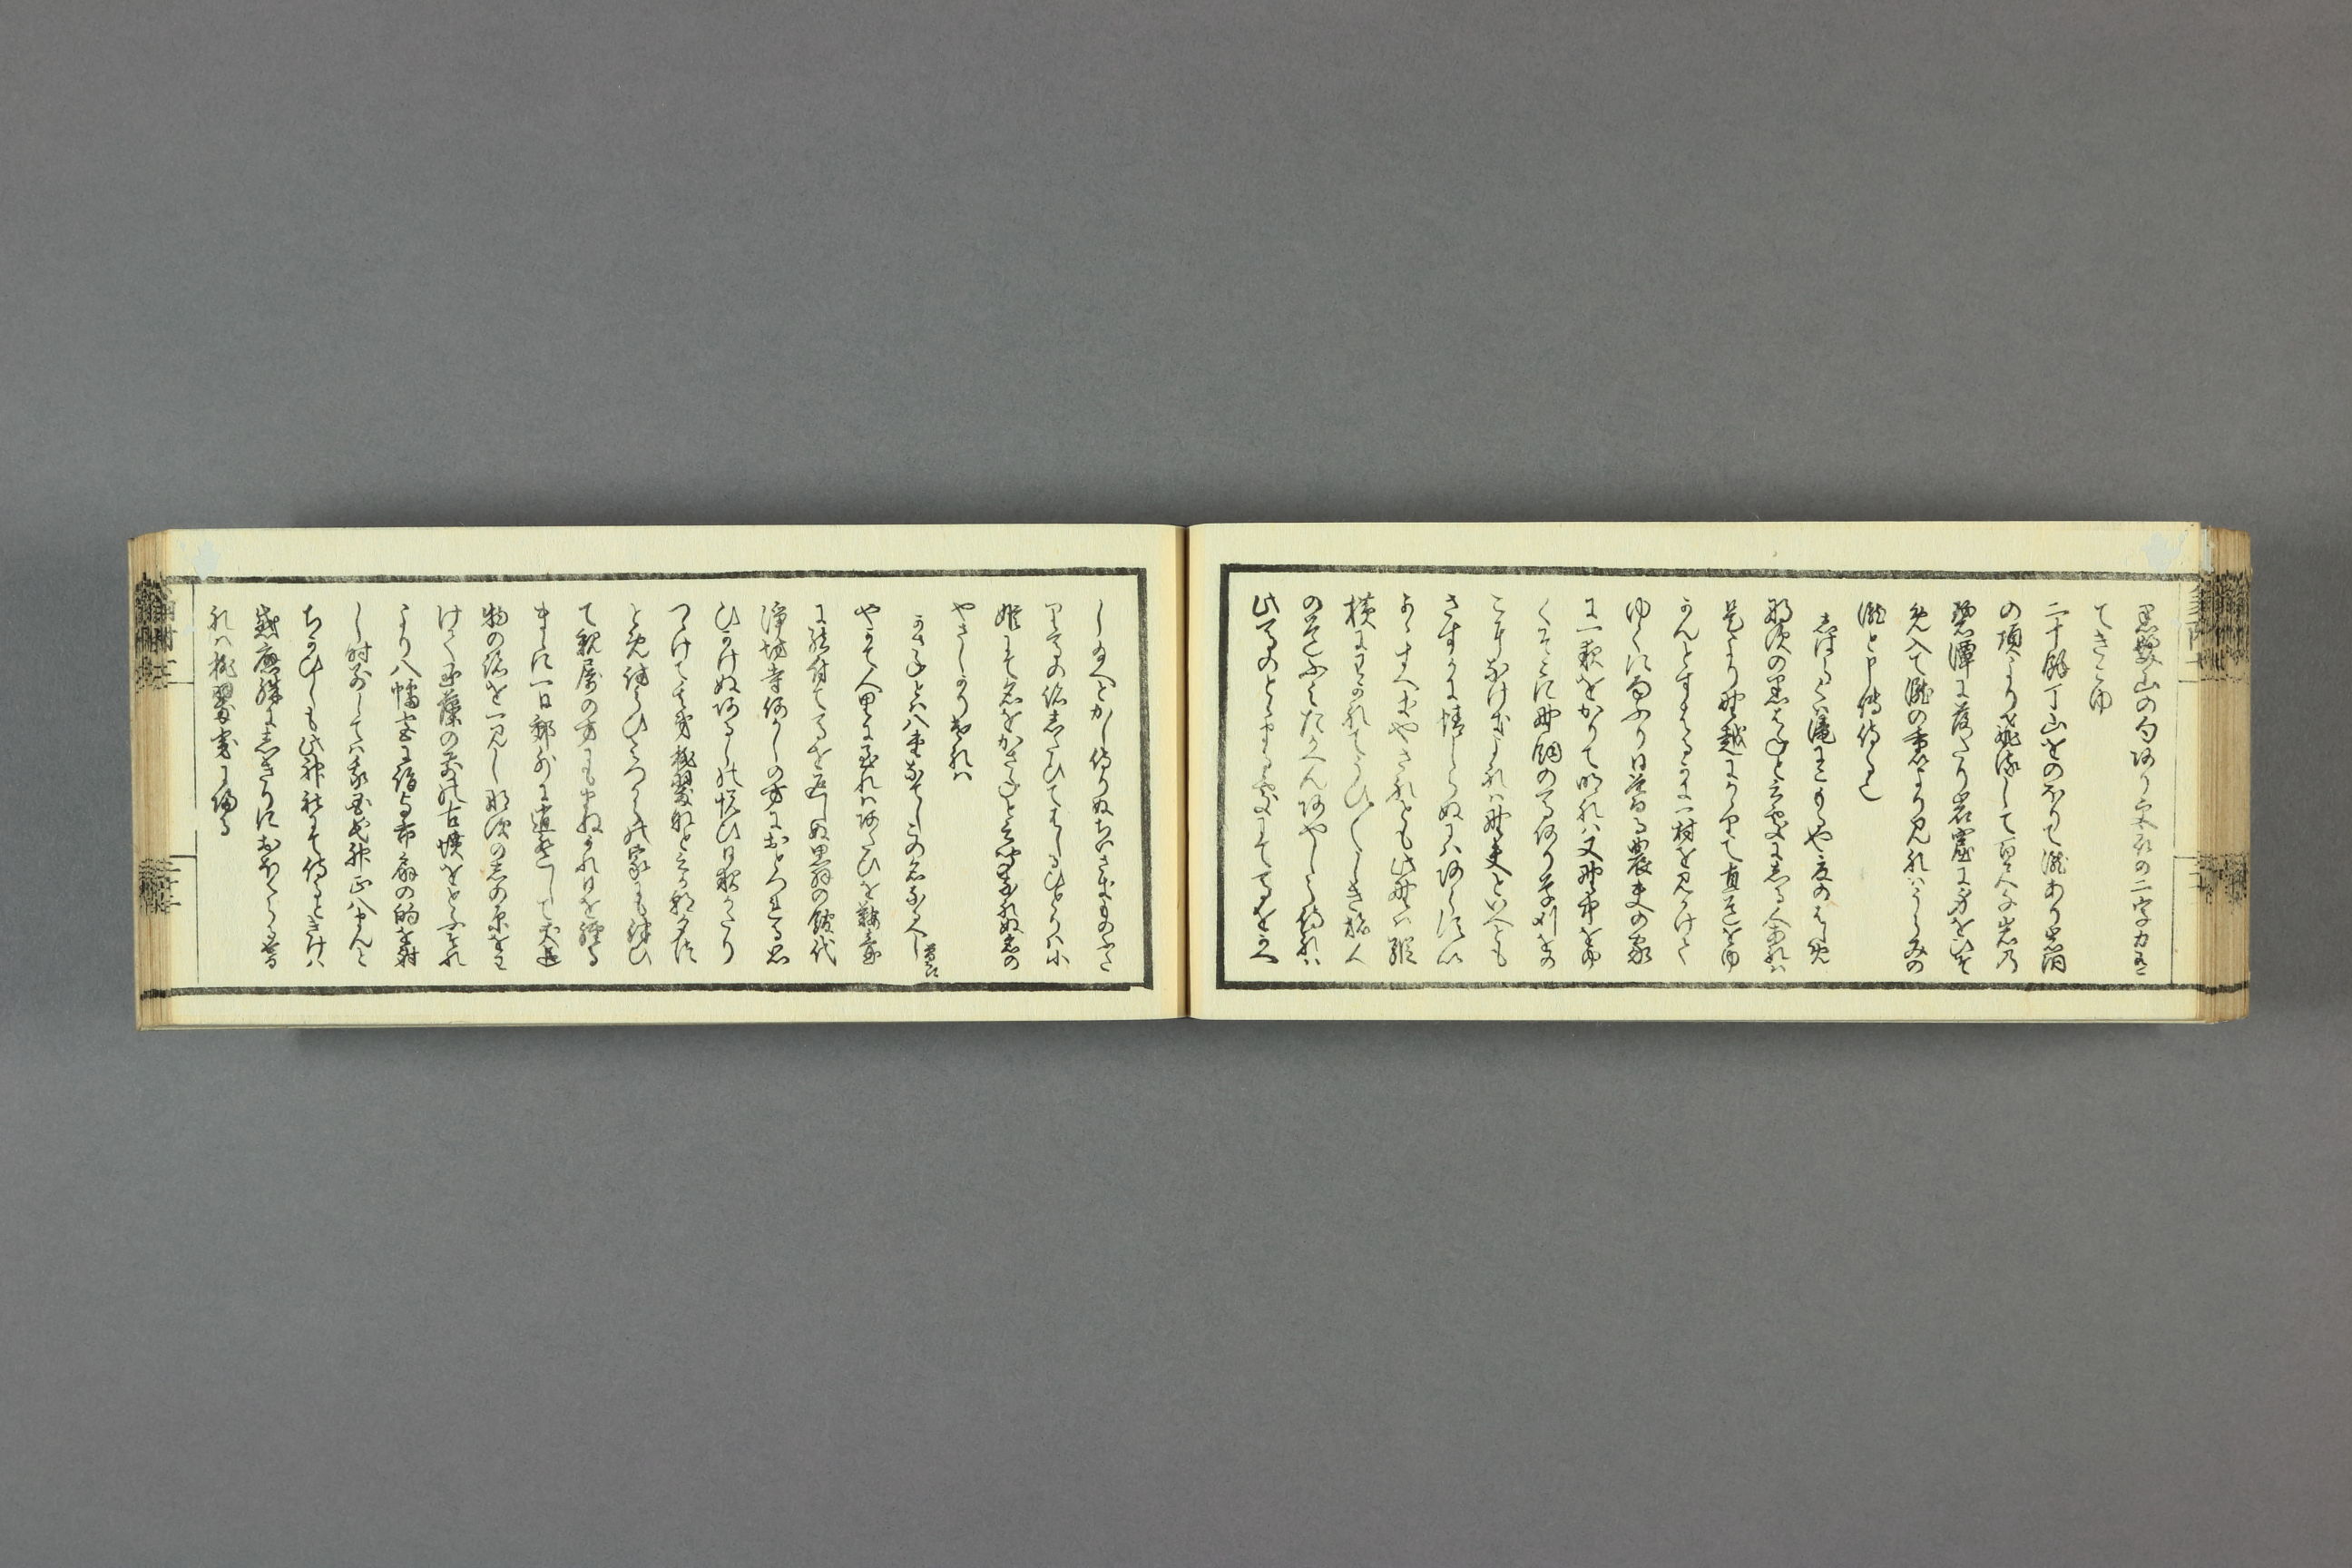 黒髪山の句有り更衣の二字力有
てきこゆ
二十餘丁山をのほりて瀧あり岩洞
の頂より飛流して百尺千岩乃
碧潭に落たり岩窟に身をひそ
め入て瀧の裏より見れはうらみの
瀧と申傳侍る也
しはらくは滝にこもるや夏のはしめ
那須の黒はねと云所にしる人あれは
是より野越にかゝりて直道をゆ
かんとすはるかに一村を見かけて
ゆくに雨ふり日暮る農夫の家
に一夜をかりて明れは又野中をゆ
くそこに野飼の馬有り草刈をの
こになけきよれは野夫といへとも
さすかに情しらぬにはあらすい
かゝすへきやされとも此野は縦
横にわかれてうひ〳〵しき旅人
の道ふみたかへんあやしう侍れは
此馬のとゝまる所にて馬をかへ
し給へとかし侍りぬちいさきものふた
り馬の跡したひてはしるひとりは小
姫にて名をかさねと云聞なれぬ名の
やさしかりけれは
かさねとは八重なてしこの名なるへし 曽良
やかて人里に至れはあたひを鞍壷
に結付て馬を返しぬ黒羽の舘代
浄坊寺何かしの方におとつれる思
ひかけぬあるしの悦ひ日夜かたり
つゝけて其弟桃翠なと云か朝夕勤
とふらひ自の家にも伴ひ
て親属の方にもまねかれ日を経る
まゝに一日郊外に逍遥して犬追
物の跡を一見し那須の篠原をわ
けて玉藻の前の古墳をとふそれ
より八幡宮に詣与市扇の的を射
し時別しては我国氏神正八まんと
ちかひしも此神社にて侍るときけは
感應殊にしきりにおほえらる暮
れは桃翠宅に帰る